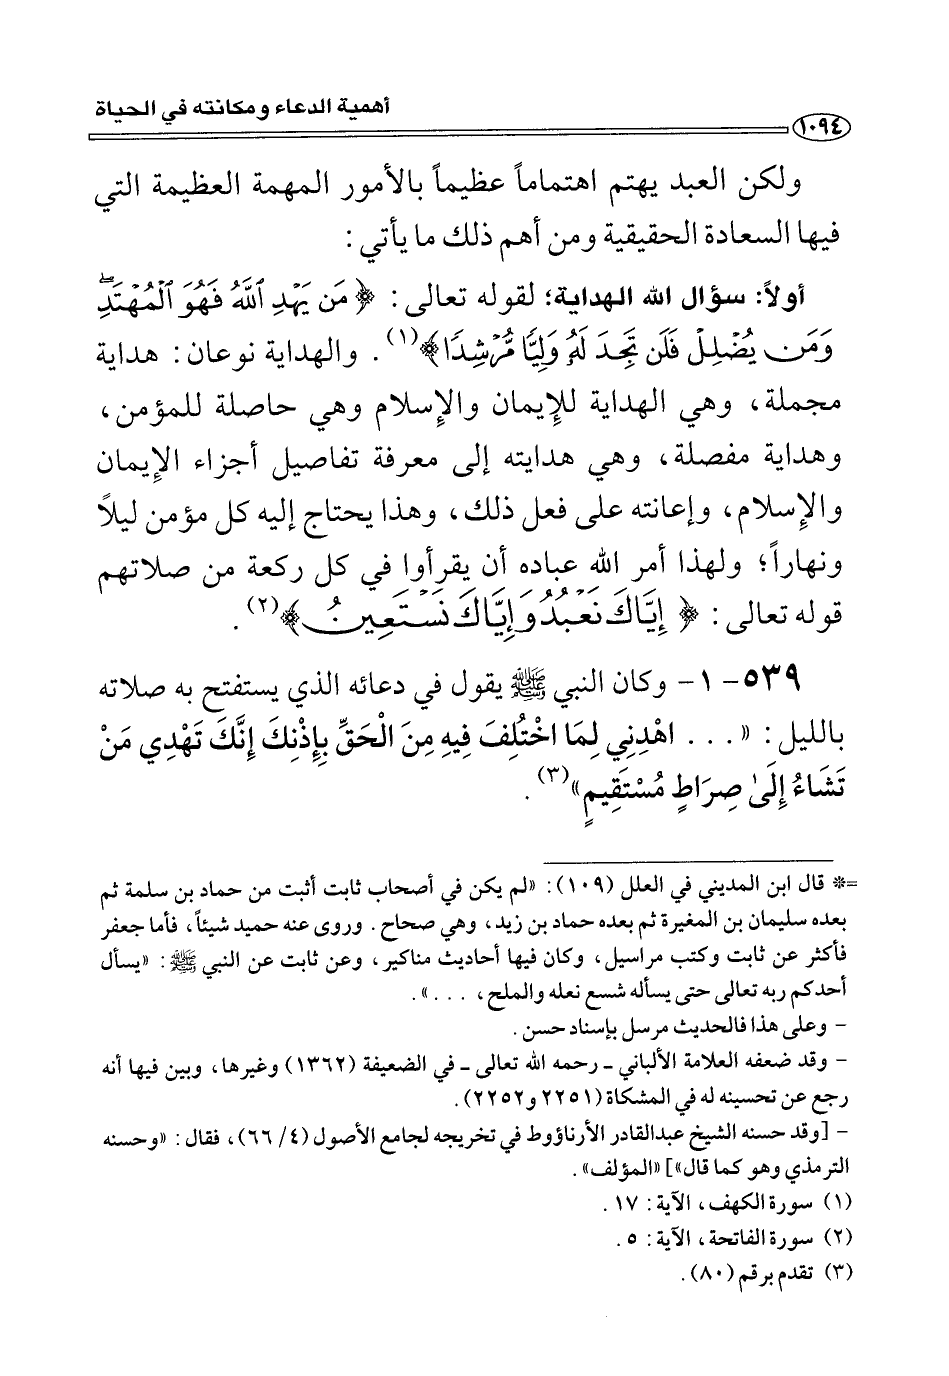 أهمية الدعاء ومكانته في الحياة
١٠٩٤
ولكن العبد يهتم اهتماماً عظيماً بالأمور المهمة العظيمة التي
فيها السعادة الحقيقية ومن أهم ذلك ما يأتي :
أولاً: سؤال الله الهداية؛ لقوله تعالى : ﴿ مَن يَهْدِ ٱللَّهُ فَهُوَ ٱلْمُهْتَدِ ۖ
وَمَن يُضْلِلْ فَلَن تَجِدَ لَهُۥ وَلِيًّا مُّرْشِدًا ﴾(١) . والهداية نوعان : هداية
مجملة، وهي الهداية للإيمان والإسلام وهي حاصلة للمؤمن،
وهداية مفصلة، وهي هدايته إلى معرفة تفاصيل أجزاء الإيمان
والإسلام، وإعانته على فعل ذلك، وهذا يحتاج إليه كل مؤمن ليلاً
ونهاراً؛ ولهذا أمر الله عباده أن يقرأوا في كل ركعة من صلاتهم
قوله تعالى : ﴿ إِيَّاكَ نَعْبُدُ وَإِيَّاكَ نَسْتَعِينُ ﴾(٢) .
٥٣٩- ١- وكان النبي ﷺ يقول في دعائه الذي يستفتح به صلاته
بالليل : « . . . اهْدِنِي لِمَا اخْتُلِفَ فِيهِ مِنَ الْحَقِّ بِإِذْنِكَ إِنَّكَ تَهْدِي مَنْ
تَشَاءُ إِلَىٰ صِرَاطٍ مُسْتَقِيمٍ»(٣) .
=* قال ابن المديني في العلل (١٠٩): «لم يكن في أصحاب ثابت أثبت من حماد بن سلمة ثم
بعده سليمان بن المغيرة ثم بعده حماد بن زيد، وهي صحاح . وروى عنه حميد شيئاً، فأما جعفر
فأكثر عن ثابت وكتب مراسيل، وكان فيها أحاديث مناكير، وعن ثابت عن النبي ﷺ : «يسأل
أحدكم ربه تعالى حتى يسأله شسع نعله والملح، . . .» .
- وعلى هذا فالحديث مرسل بإسناد حسن .
- وقد ضعفه العلامة الألباني - رحمه الله تعالى - في الضعيفة (١٣٦٢) وغيرها، وبين فيها أنه
رجع عن تحسينه له في المشكاة (٢٢٥١ و٢٢٥٢).
- [وقد حسنه الشيخ عبدالقادر الأرناؤوط في تخريجه لجامع الأصول (٤/ ٦٦)، فقال : «وحسنه
الترمذي وهو كما قال»] «المؤلف» .
(١) سورة الكهف، الآية : ١٧ .
(٢) سورة الفاتحة، الآية : ٥ .
(٣) تقدم برقم (٨٠).